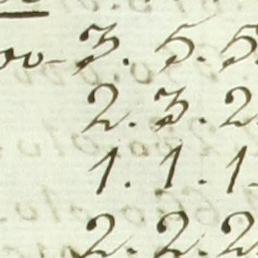 3. 5. 5.
2. 3. 2
1. 1. 1
2. 2. 2